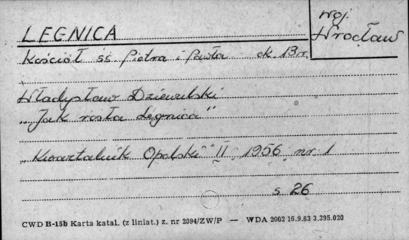 LEGNICA
woj. Wrocław
Kościół śś. Piotra i Pawła ok. 13 w
Władysław Dziewulski
„Jak rosła Legnica"
„Kwartalnik Opolski" II, 1956, nr 1
s 26
CWD B-15b Karta katal. (z liniat.) z. nr 2094/ZW/P — WDA 2062 16.9.63 3.295.020